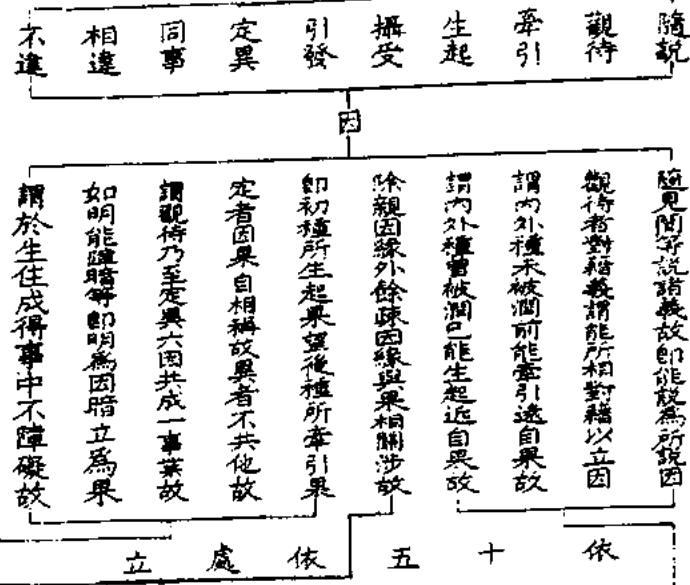 隨說
觀待
牽引
生起
攝受
引發
定異
同事
相違
不違
因
隨見聞等說諸義故即能說為所說因
觀待者對藉義謂能所相對藉以立因
謂內外種未被潤前能牽引遠自果故
謂內外種曾被潤已能生起近自果故
除親因緣外餘疎因緣與果相關涉故
即初種所生起果望後種所牽引果
定者因果自相稱故異者不共他故
謂觀待乃至定異六因共成一事業故
如明能障暗等即明為因暗立為果
謂於生住成得事中不障礙故
依十五依處立